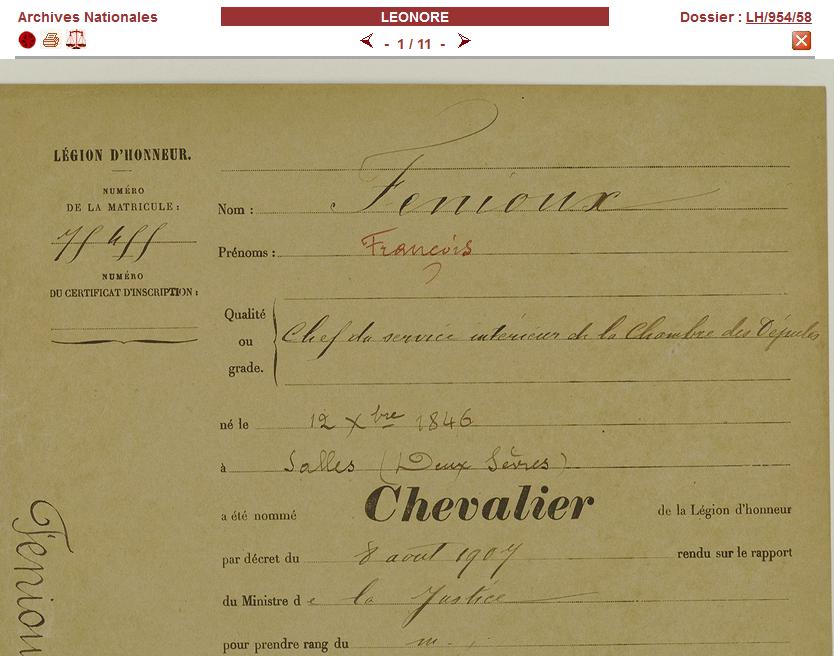 Archives Nationales
LEONORE
Dossier : LH/954/58
- 1 / 11 -
LÉGION D'HONNEUR.
NUMÉRO
DE LA MATRICULE :
75455
NUMÉRO
DU CERTIFICAT D'INSCRIPTION :
Nom : Fenioux
Prénoms : François
Qualité
ou
grade.
Chef du service intérieur de la Chambre des Députés
né le 12 Xbre 1846
à Salles (Deux Sèvres)
a été nommé Chevalier de la Légion d'honneur
par décret du 8 aout 1907 rendu sur le rapport
du Ministre de la Justice
pour prendre rang du
Fenioux